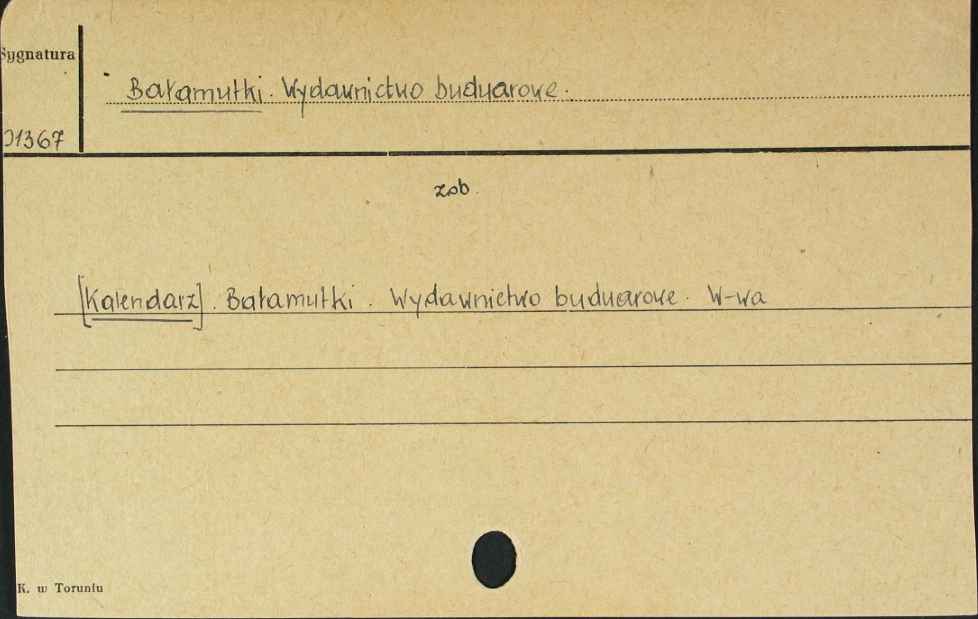 Sygnatura
Bałamutki. Wydawnictwo buduarowe.
01367
zob.
[Kalendarz]. Bałamutki. Wydawnictwo buduarowe. W-wa
K. w Toruniu